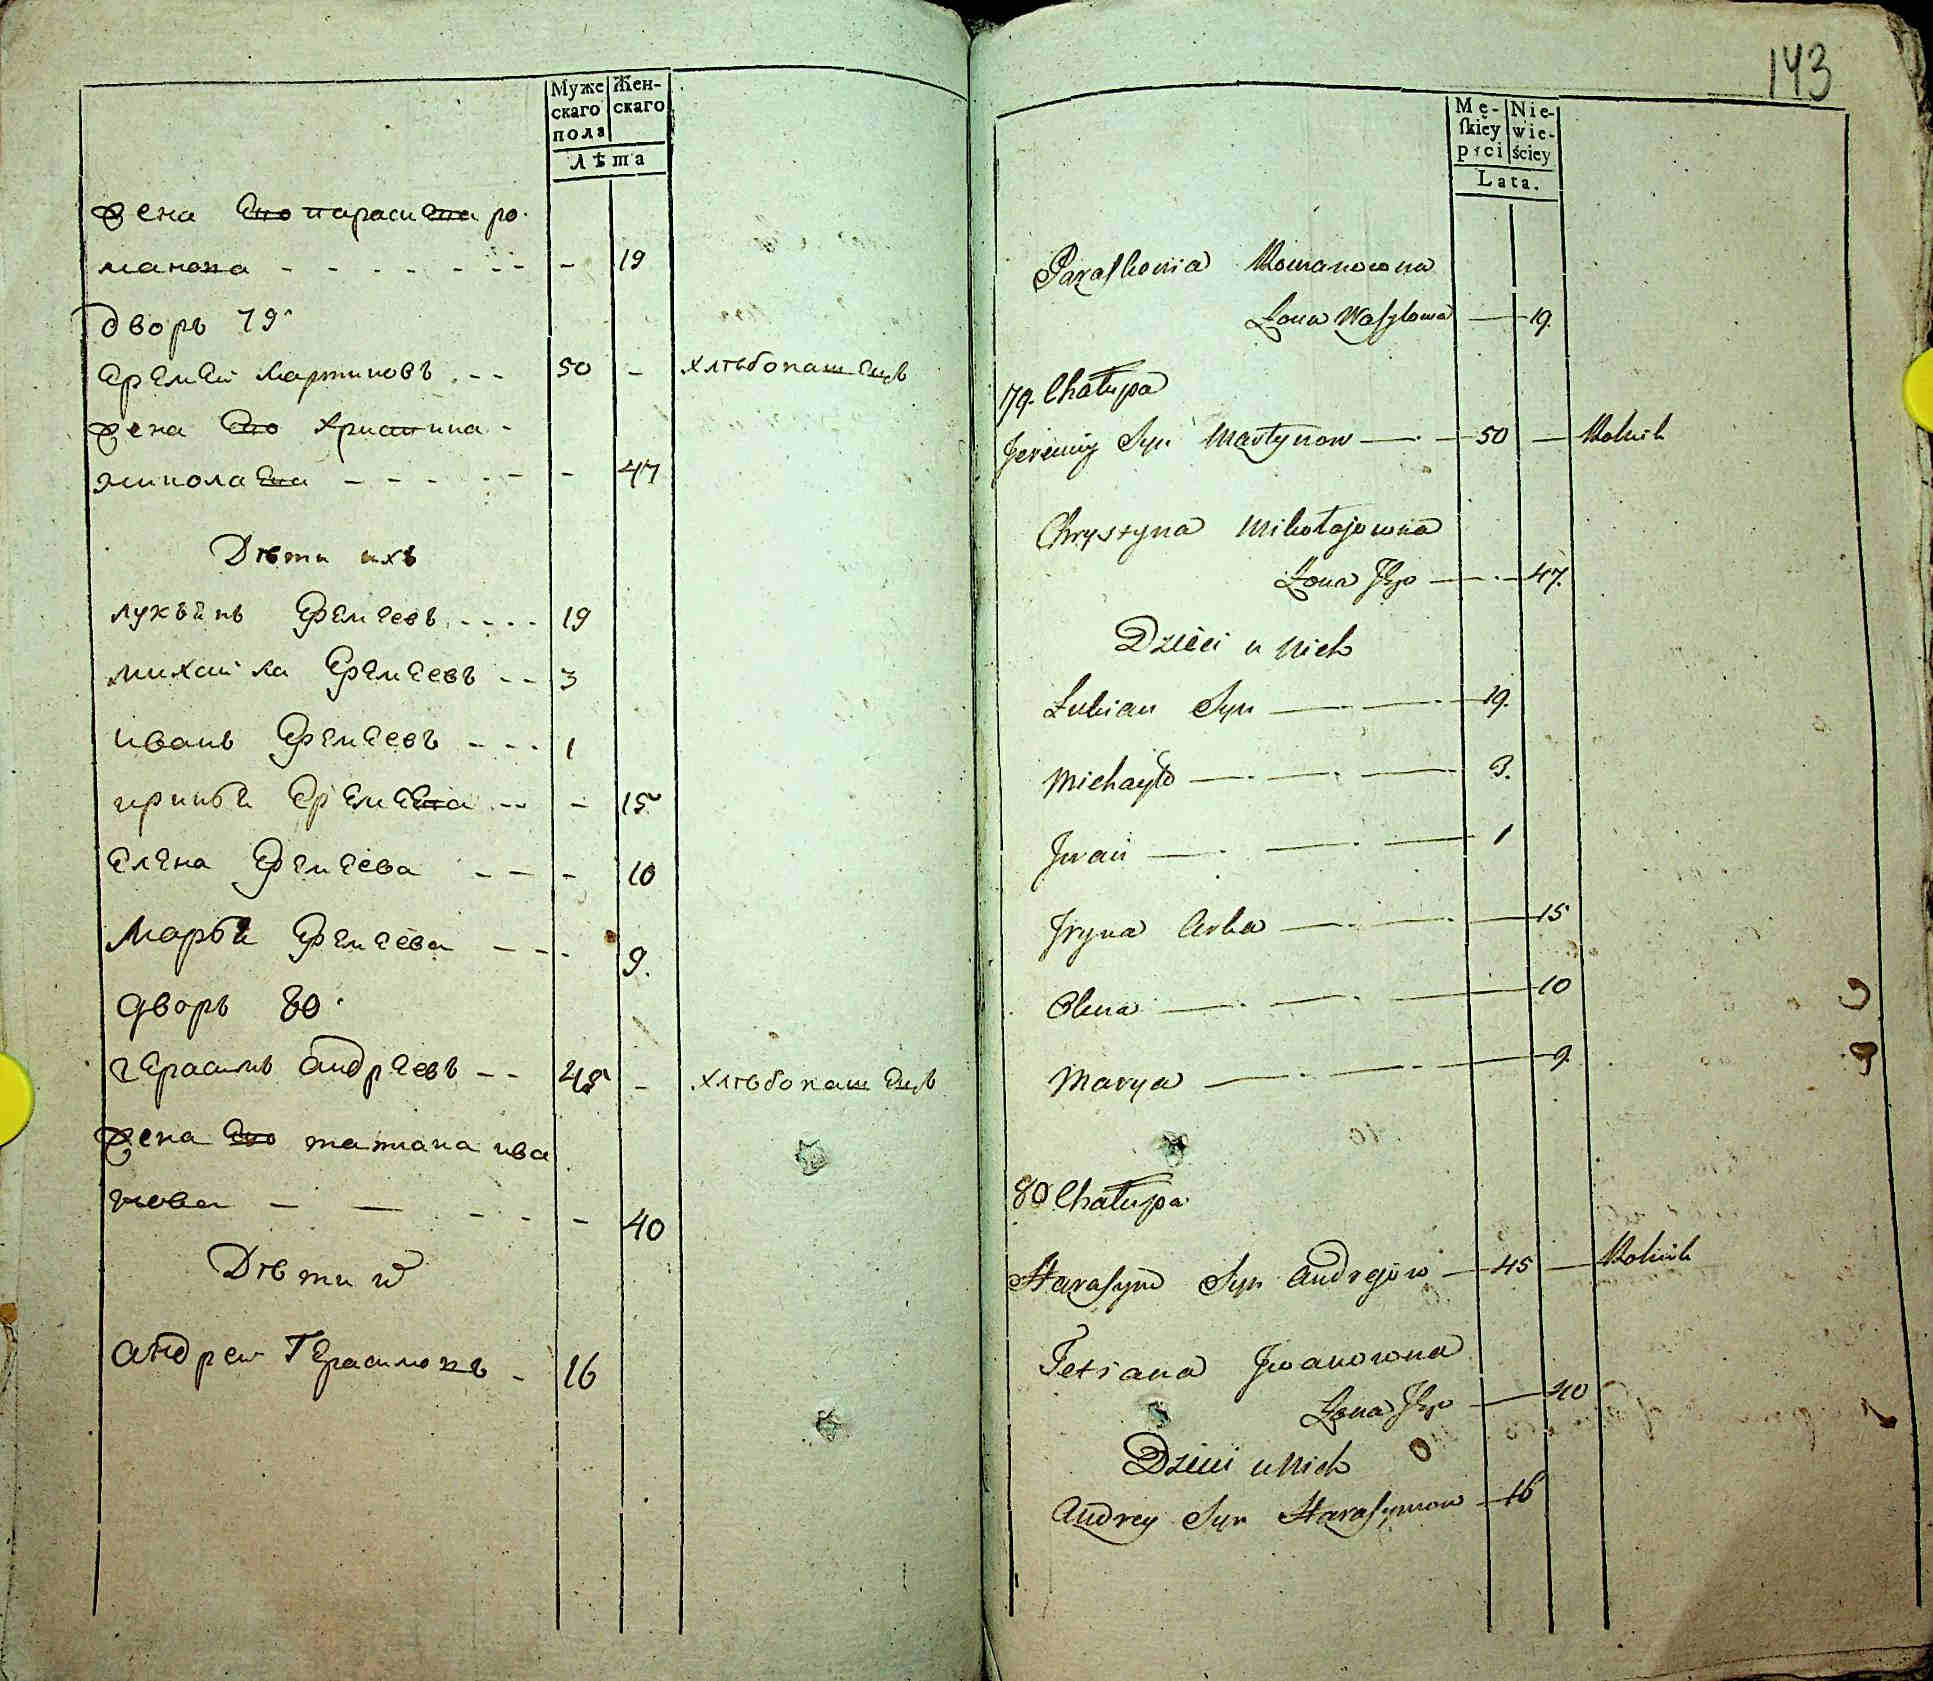 Муже
скаго
пола
Жен-
скаго
лѣта
жена Его параскева ро
манова - - - - - - - - 19
дворъ 79
Еремей Мартиновъ - - 50 - хлѣбопашецъ
жена Его Христина -
николаева - - - - - - 47
Дѣти ихъ
лукьянъ Еремеевъ - - - - 19
михайла Еремеевъ - - 3
иванъ Еремеевъ - - - 1
ирина Еремеева - - - 15
Елена Еремеева - - - 10
Марья Еремеева - - - 9.
дворъ 80
герасимъ андреевъ - - 45 - хлѣбопашецъ
жена Его татиана ива
нова - - - - - 40
Дѣти
андреи Герасимовъ - 16
143
Mę-
ſkiey
płci
Nie-
wie-
ściey
Lata.
Paraſkowia Romanowna
Żona Waſylowa — 19.
79. Chałupa
Jeremiy Syn Martynow — 50 — Rolnik
Chrystyna Mikołajowna
Żona Jego — 47.
Dzieci u Nich
Łukian Syn — 19.
Michayło — 3.
Jwan — 1
Jryna Córka — 15
Olena — 10
Marya — 9.
80 Chałupa
Haraſym Syn Andrejow — 45 — Rolnik
Tetiana Jwanowna
Żona Jego — 40
Dzieci u Nich
Andrey Syn Haraſymow — 16